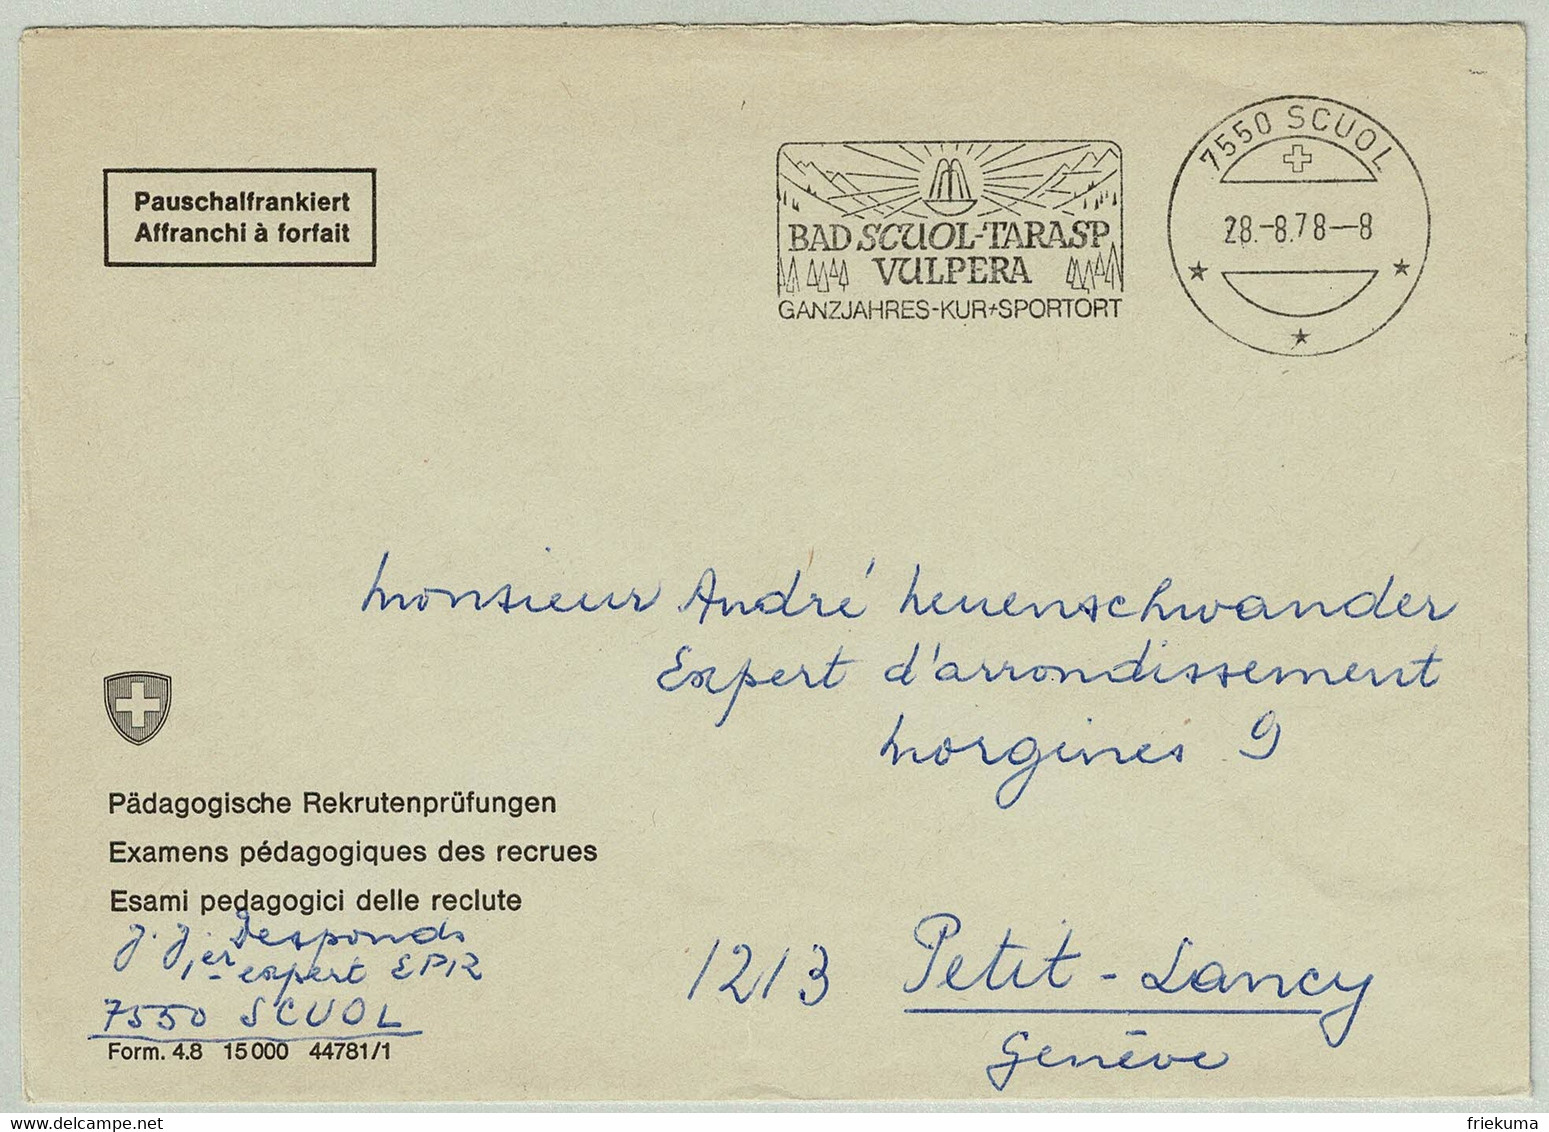 Pauschalfrankiert
Affranchi à forfait
BAD SCUOL-TARASP
VULPERA
GANZJAHRES-KUR+SPORTORT
7550 SCUOL
28.-8.78-8
Monsieur André Neuenschwander
Expert d'arrondissement
Morgines 9
1213 Petit-Lancy
Genève
Pädagogische Rekrutenprüfungen
Examens pédagogiques des recrues
Esami pedagogici delle reclute
J. J. Desponds
1er expert EPR
7550 SCUOL
Form. 4.8 15 000 44781/1
delcampe.net
friekuma